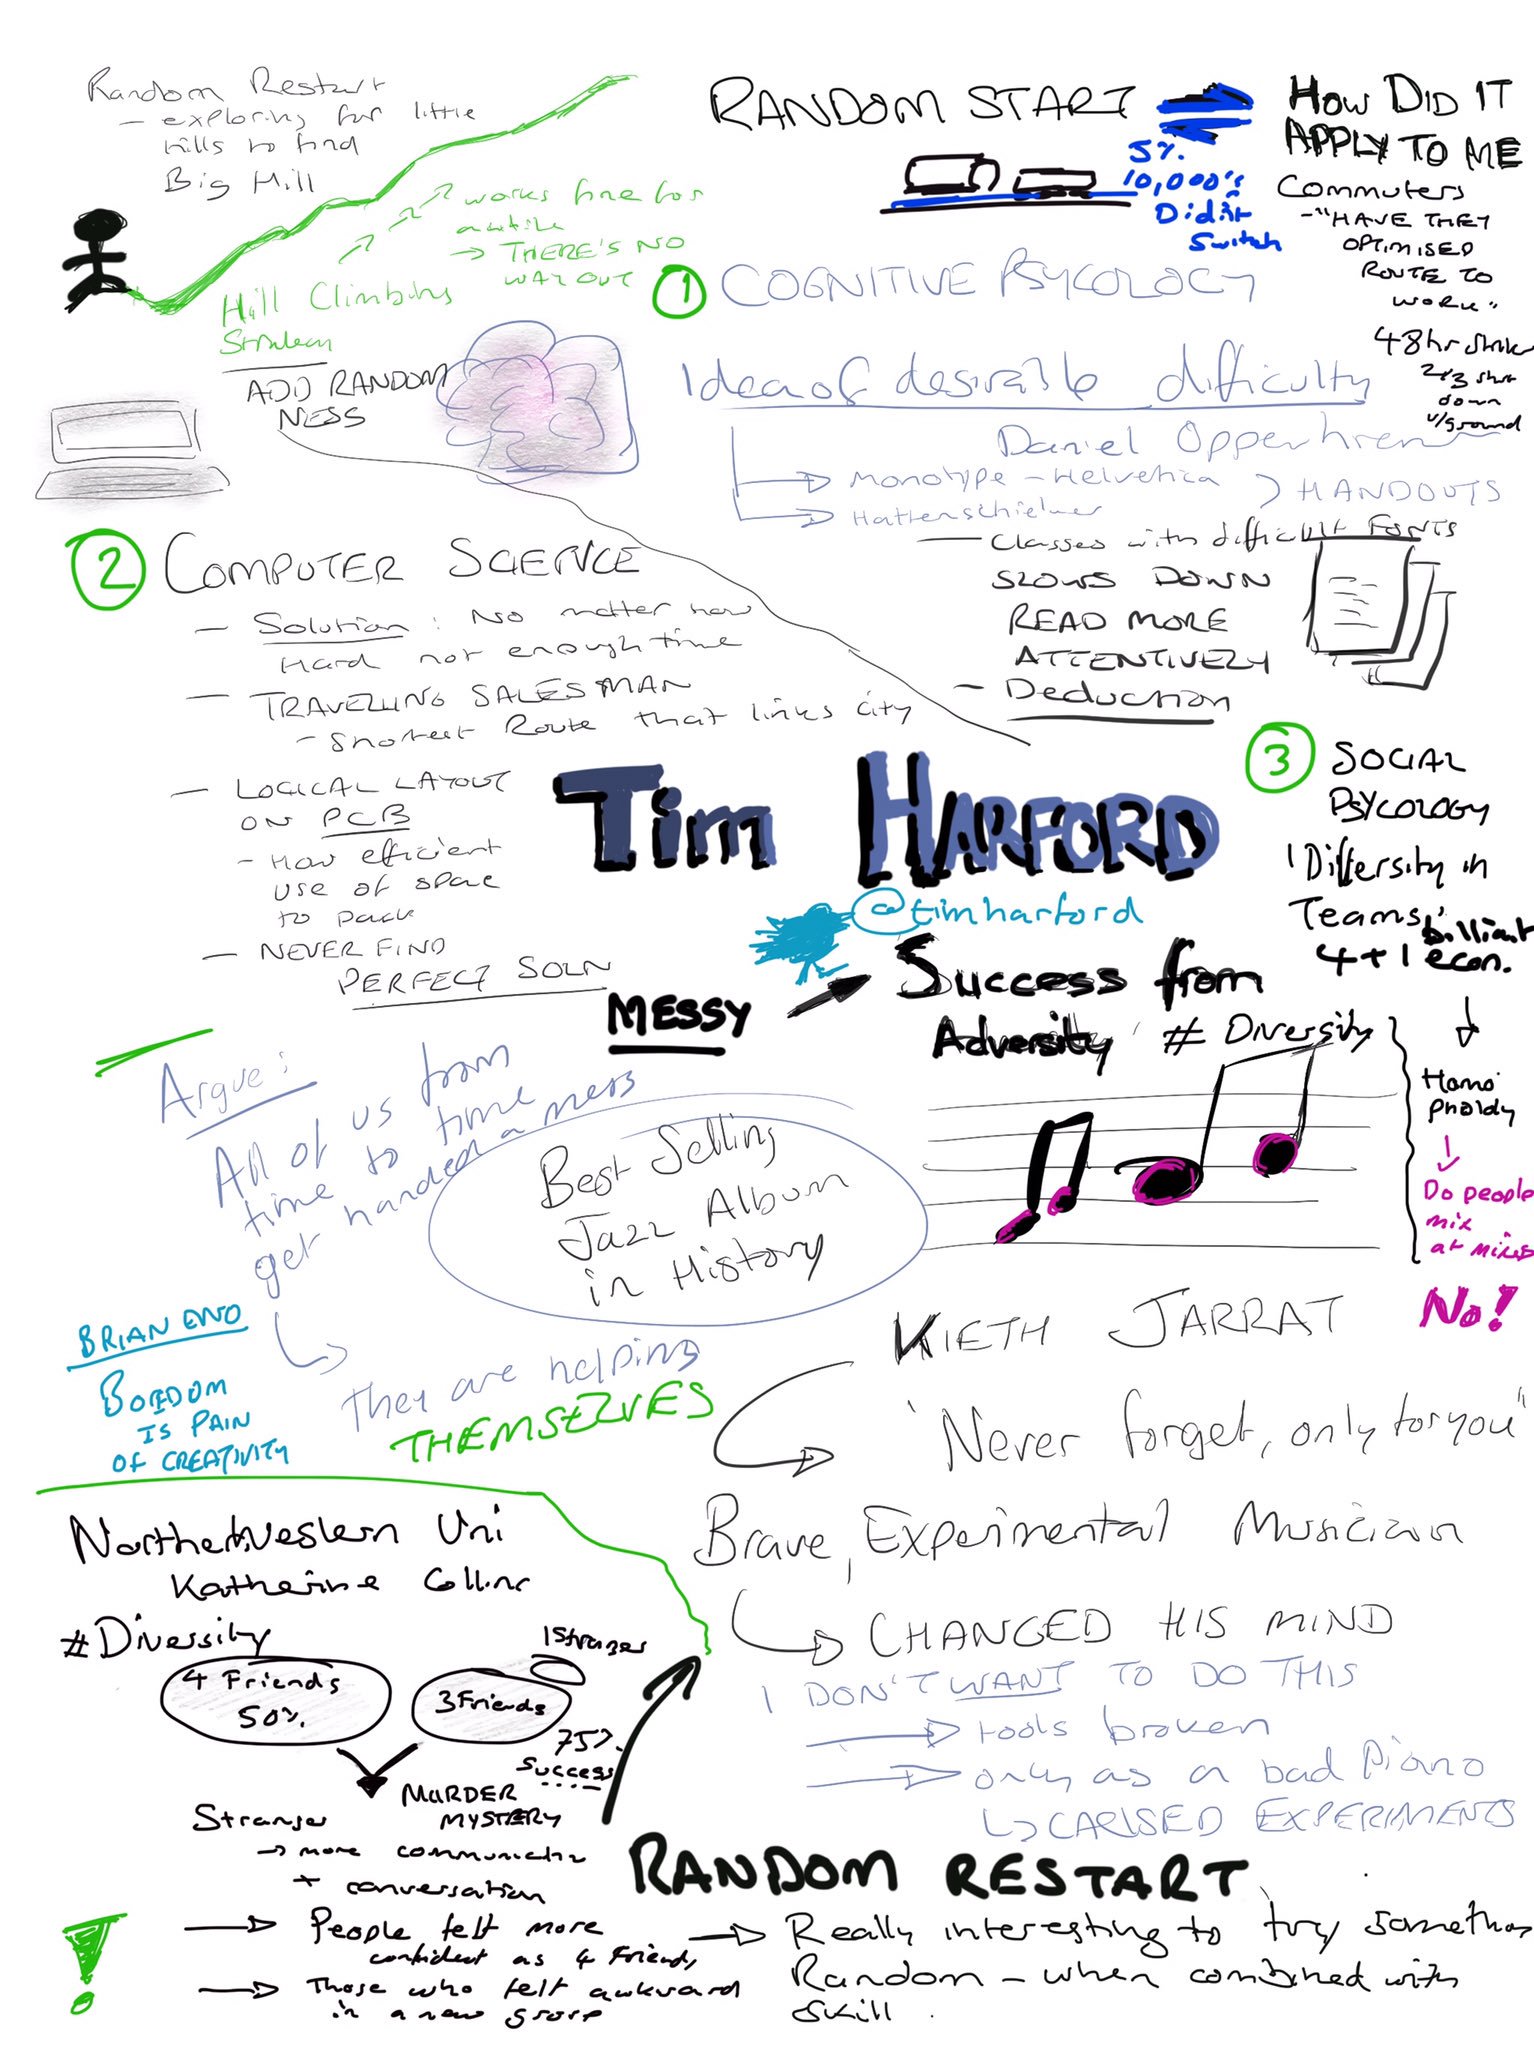 Random Restart
- exploring for little
hills to find
Big Hill
works fine for
awhile
→ THERE'S NO
WAY OUT
Hill Climbing
ADD RANDOM
NESS
RANDOM START
5%
10,000's
Didn't
Switch
HOW DID IT
APPLY TO ME
Commuters
- "HAVE THEY
OPTIMISED
ROUTE TO
WORK"
48hr strike
2/3 shut
down
u/ground
1 COGNITIVE PSYCOLOGY
Idea of desirable difficulty
Daniel
Monotype - Helvetica > HANDOUTS
- Classes with difficult FONTS
SLOWS DOWN
READ MORE
ATTENTIVELY
- Deduction
2 COMPUTER SCIENCE
- Solution: No matter how
Hard not enough time
- TRAVELLING SALESMAN
- Shortest Route that links city
- LOGICAL LAYOUT
ON PCB
- How efficient
use of space
to pack
- NEVER FIND
PERFECT SOLN
Tim HARFORD
@timharford
MESSY → Success from
Adversity # Diversity
3 SOCIAL
PSYCOLOGY
'Diversity in
Teams'
4 + 1 brilliant
econ.
Do people
mix
at mixers
No!
Argue:
All of us from
time to time
get handed a mess
They are helping
THEMSELVES
Best Selling
Jazz Album
in History
KIETH JARRAT
'Never forget, only for you"
Brave, Experimental Musician
CHANGED HIS MIND
I DON'T WANT TO DO THIS
tools broken
only as a bad Piano
EXPERIMENTS
BRIAN ENO
BOREDOM
IS PAIN
OF CREATIVITY
Uni
Katherine
#Diversity
4 Friends
50%
1 Stranger
3 Friends
75%
success
MURDER
MYSTERY
Stranger
→ more
+ conversation
→ People felt more
confident as 4 Friends
→ Those who felt awkward
in a new group
RANDOM RESTART
→ Really interesting to try something
Random - when combined with
skill.